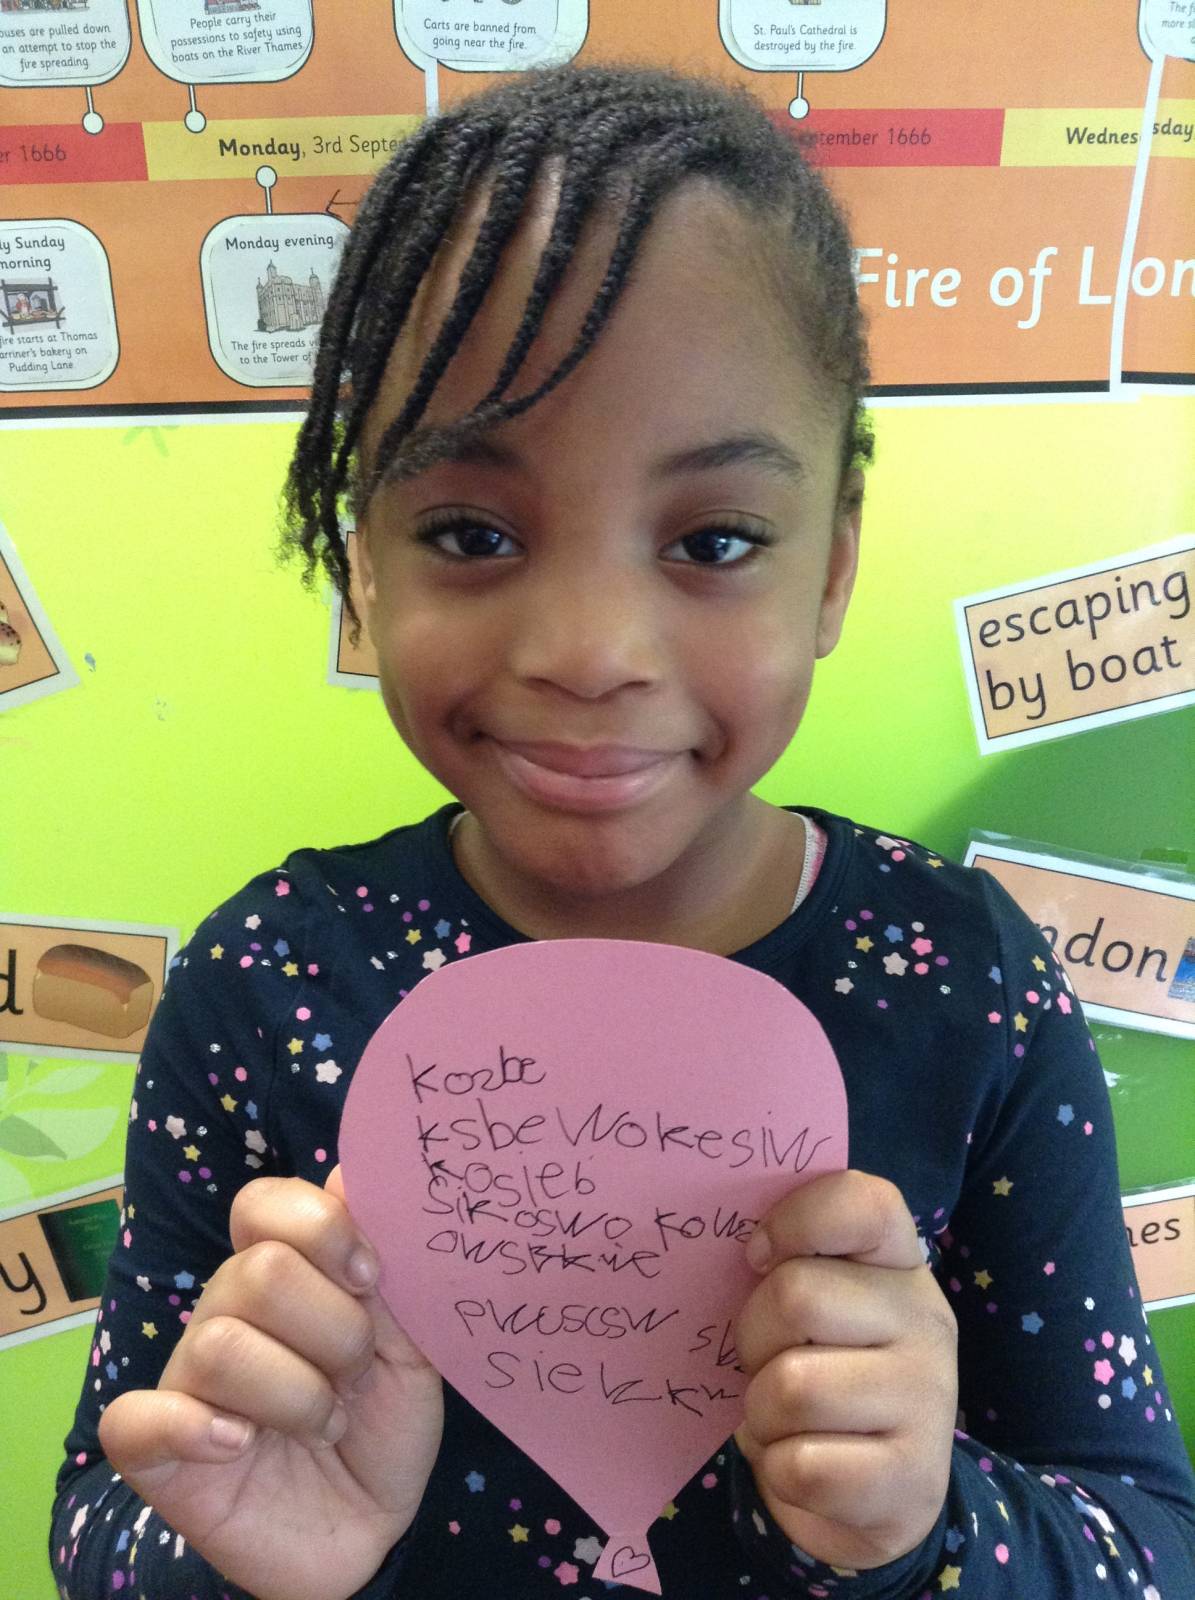 ouses are pulled down
an attempt to stop the
fire spreading.
People carry their
possessions to safety using
boats on the River Thames.
Carts are banned from
going near the fire.
St. Paul's Cathedral is
destroyed by the fire.
er 1666
Monday, 3rd Septe
tember 1666
Wednes
sday
ly Sunday
morning
fire starts at Thomas
arriner's bakery on
Pudding Lane
Monday evening
The fire spreads
to the Tower of
Fire of Lon
escaping
by boat
ndon
d
y
nes
kozbe
ksbe wokesiw
kosieb
sikoswo
siel